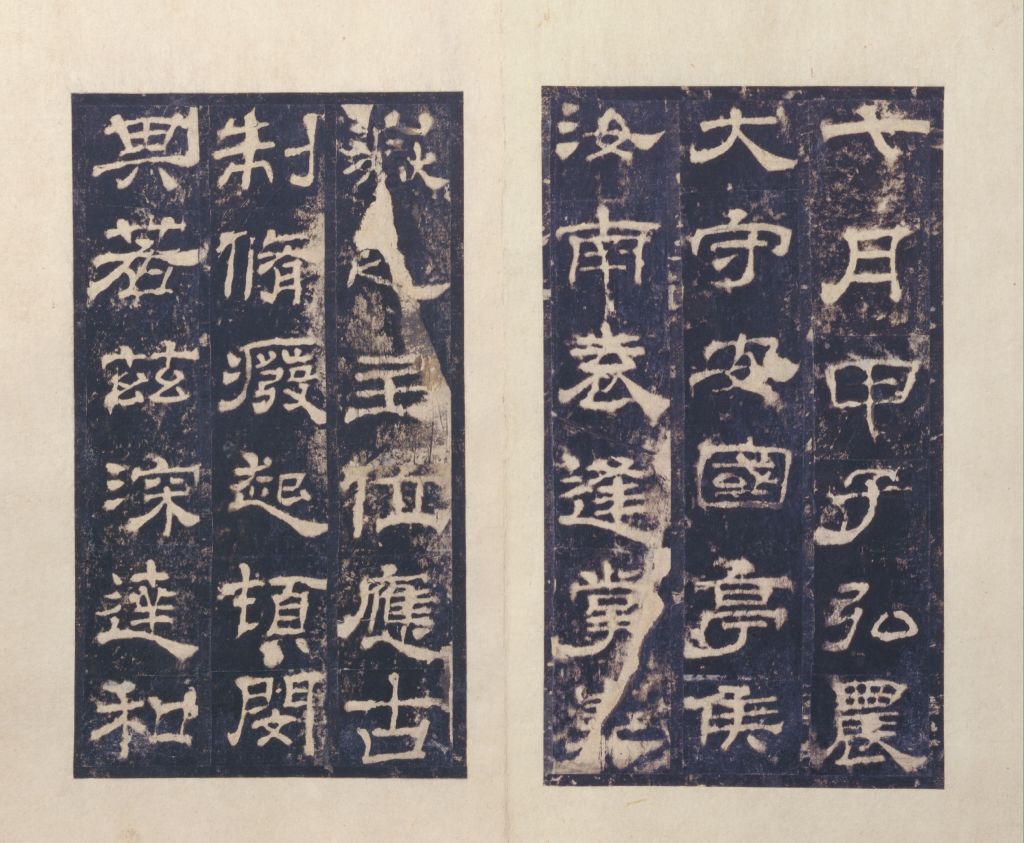 七月甲子弘農
大守安國亭侯
汝南袁逢掌華
嶽之主位應古
制脩癈起頓閔
其若茲深達和